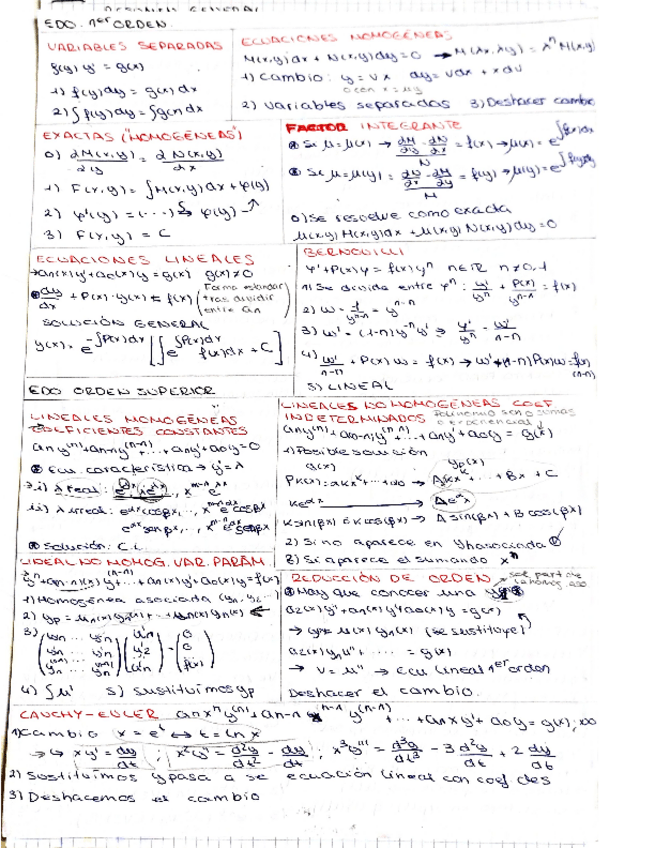 EDO. 1er ORDEN.
VARIABLES SEPARADAS
f(y) y' = g(x)
1) f(y) dy = g(x) dx
2) ∫f(y) dy = ∫g(x) dx
ECUACIONES HOMOGÉNEAS
M(x,y)dx + N(x,y)dy = 0 → M(λx, λy) = λⁿ M(x,y)
1) Cambio: y = vx dy = vdx + xdv
2) Variables separadas 3) Deshacer cambio
EXACTAS ("HOMOGÉNEAS")
0) ∂M(x,y)/∂y = ∂N(x,y)/∂x
1) F(x,y) = ∫M(x,y)dx + φ(y)
2) φ'(y) = (...) → φ(y)
3) F(x,y) = C
FACTOR INTEGRANTE
Si μ = μ(x) → (∂M/∂y - ∂N/∂x)/N = f(x) → μ(x) = e^∫f(x)dx
Si μ = μ(y) = (∂N/∂x - ∂M/∂y)/M = f(y) → μ(y) = e^∫f(y)dy
0) Se resuelve como exacta
μ(x,y) M(x,y)dx + μ(x,y) N(x,y)dy = 0
ECUACIONES LINEALES
→ a₁(x)y' + a₀(x)y = g(x) g(x) ≠ 0
dy/dx + P(x)·y(x) = f(x) (Forma estandar tras dividir entre an)
SOLUCIÓN GENERAL
y(x) = e^-∫P(x)dx [∫e^∫P(x)dx f(x)dx + C]
BERNOUILLI
y' + P(x)y = f(x)yⁿ n∈R n≠0,1
1) Se divide entre yⁿ: y'/yⁿ + P(x)/yⁿ⁻¹ = f(x)
2) w = 1/yⁿ⁻¹ = y¹⁻ⁿ
3) w' = (1-n)y⁻ⁿy' → y'/yⁿ = w'/(1-n)
4) w'/(1-n) + P(x)w = f(x) → w' + (1-n)P(x)w = f(x)(1-n)
5) LINEAL
EDO ORDEN SUPERIOR
LINEALES HOMOGÉNEAS
COEFICIENTES CONSTANTES
any⁽ⁿ⁾ + an-1y⁽ⁿ⁻¹⁾ + ... + a₁y' + a₀y = 0
Ecu. característica → y' = λ
i) λ real: e^λx, xe^λx, ..., x^m-1 e^λx
ii) λ irreal: e^αx cosβx, ..., x^m-1 e^αx cosβx
e^αx senβx, ..., x^m-1 e^αx senβx
Solución: C.L.
LINEALES NO HOMOGÉNEAS COEF.
INDETERMINADOS Polinomio sen o sumas
o exponencial
any⁽ⁿ⁾ + an-1y⁽ⁿ⁻¹⁾ + ... + a₁y' + a₀y = g(x)
1) Posible solución
g(x) yp(x)
Pk(x) = akx^k + ... + a₀ → Akx^k + ... + Bx + C
Ke^αx → Ae^αx
K sin(βx) ó K cos(βx) → A sin(βx) + B cos(βx)
2) Si no aparece en yh asociada
3) Si aparece el sumando xⁿ
LINEAL NO HOMOG. VAR. PARÁM
y⁽ⁿ⁾ + an-1(x)y⁽ⁿ⁻¹⁾ + ... + a₁(x)y' + a₀(x)y = f(x)
1) Homogénea asociada (y₁, y₂...
2) yp = μ₁(x)y₁(x) + ... + μn(x)yn(x) ←
3) (y₁ ... yn; y'₁ ... y'n; y₁⁽ⁿ⁻¹⁾ ... yn⁽ⁿ⁻¹⁾) (μ'₁; μ'₂; μ'n) = (0; 0; f(x))
4) ∫μ' 5) sustituimos yp
REDUCCIÓN DE ORDEN
Hay que conocer una
a₂(x)y'' + a₁(x)y' + a₀(x)y = g(x)
→ yp = μ(x)y₁(x) (se sustituye)
a₂(x)y₁μ'' + ... = g(x)
→ v = μ' → ecu lineal 1er orden
Deshacer el cambio.
CAUCHY-EULER anxⁿy⁽ⁿ⁾ + an-1xⁿ⁻¹y⁽ⁿ⁻¹⁾ + ... + a₁xy' + a₀y = g(x), x>0
1) Cambio x = e^t ↔ t = ln x
→ xy' = dy/dt ; x²y'' = d²y/dt² - dy/dt ; x³y''' = d³y/dt³ - 3 d²y/dt + 2 dy/dt
2) Sustituimos y pasa a se ecuación lineal con coef ctes
3) Deshacemos el cambio